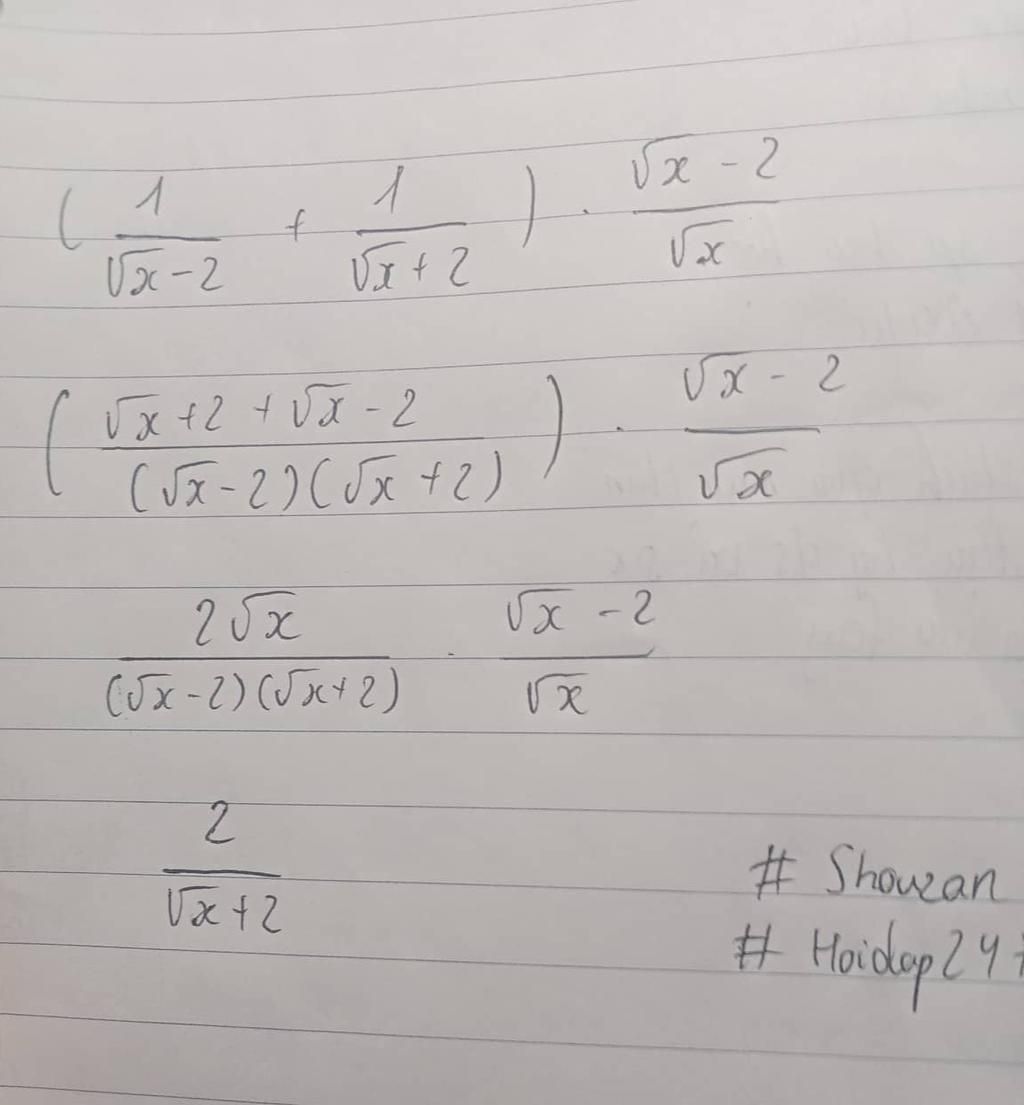 ( 1/(√x - 2) + 1/(√x + 2) ) · (√x - 2)/√x
( (√x + 2 + √x - 2)/((√x - 2)(√x + 2)) ) · (√x - 2)/√x
2√x/((√x - 2)(√x + 2)) · (√x - 2)/√x
2/(√x + 2)
# Shouzan
# Hoidap247